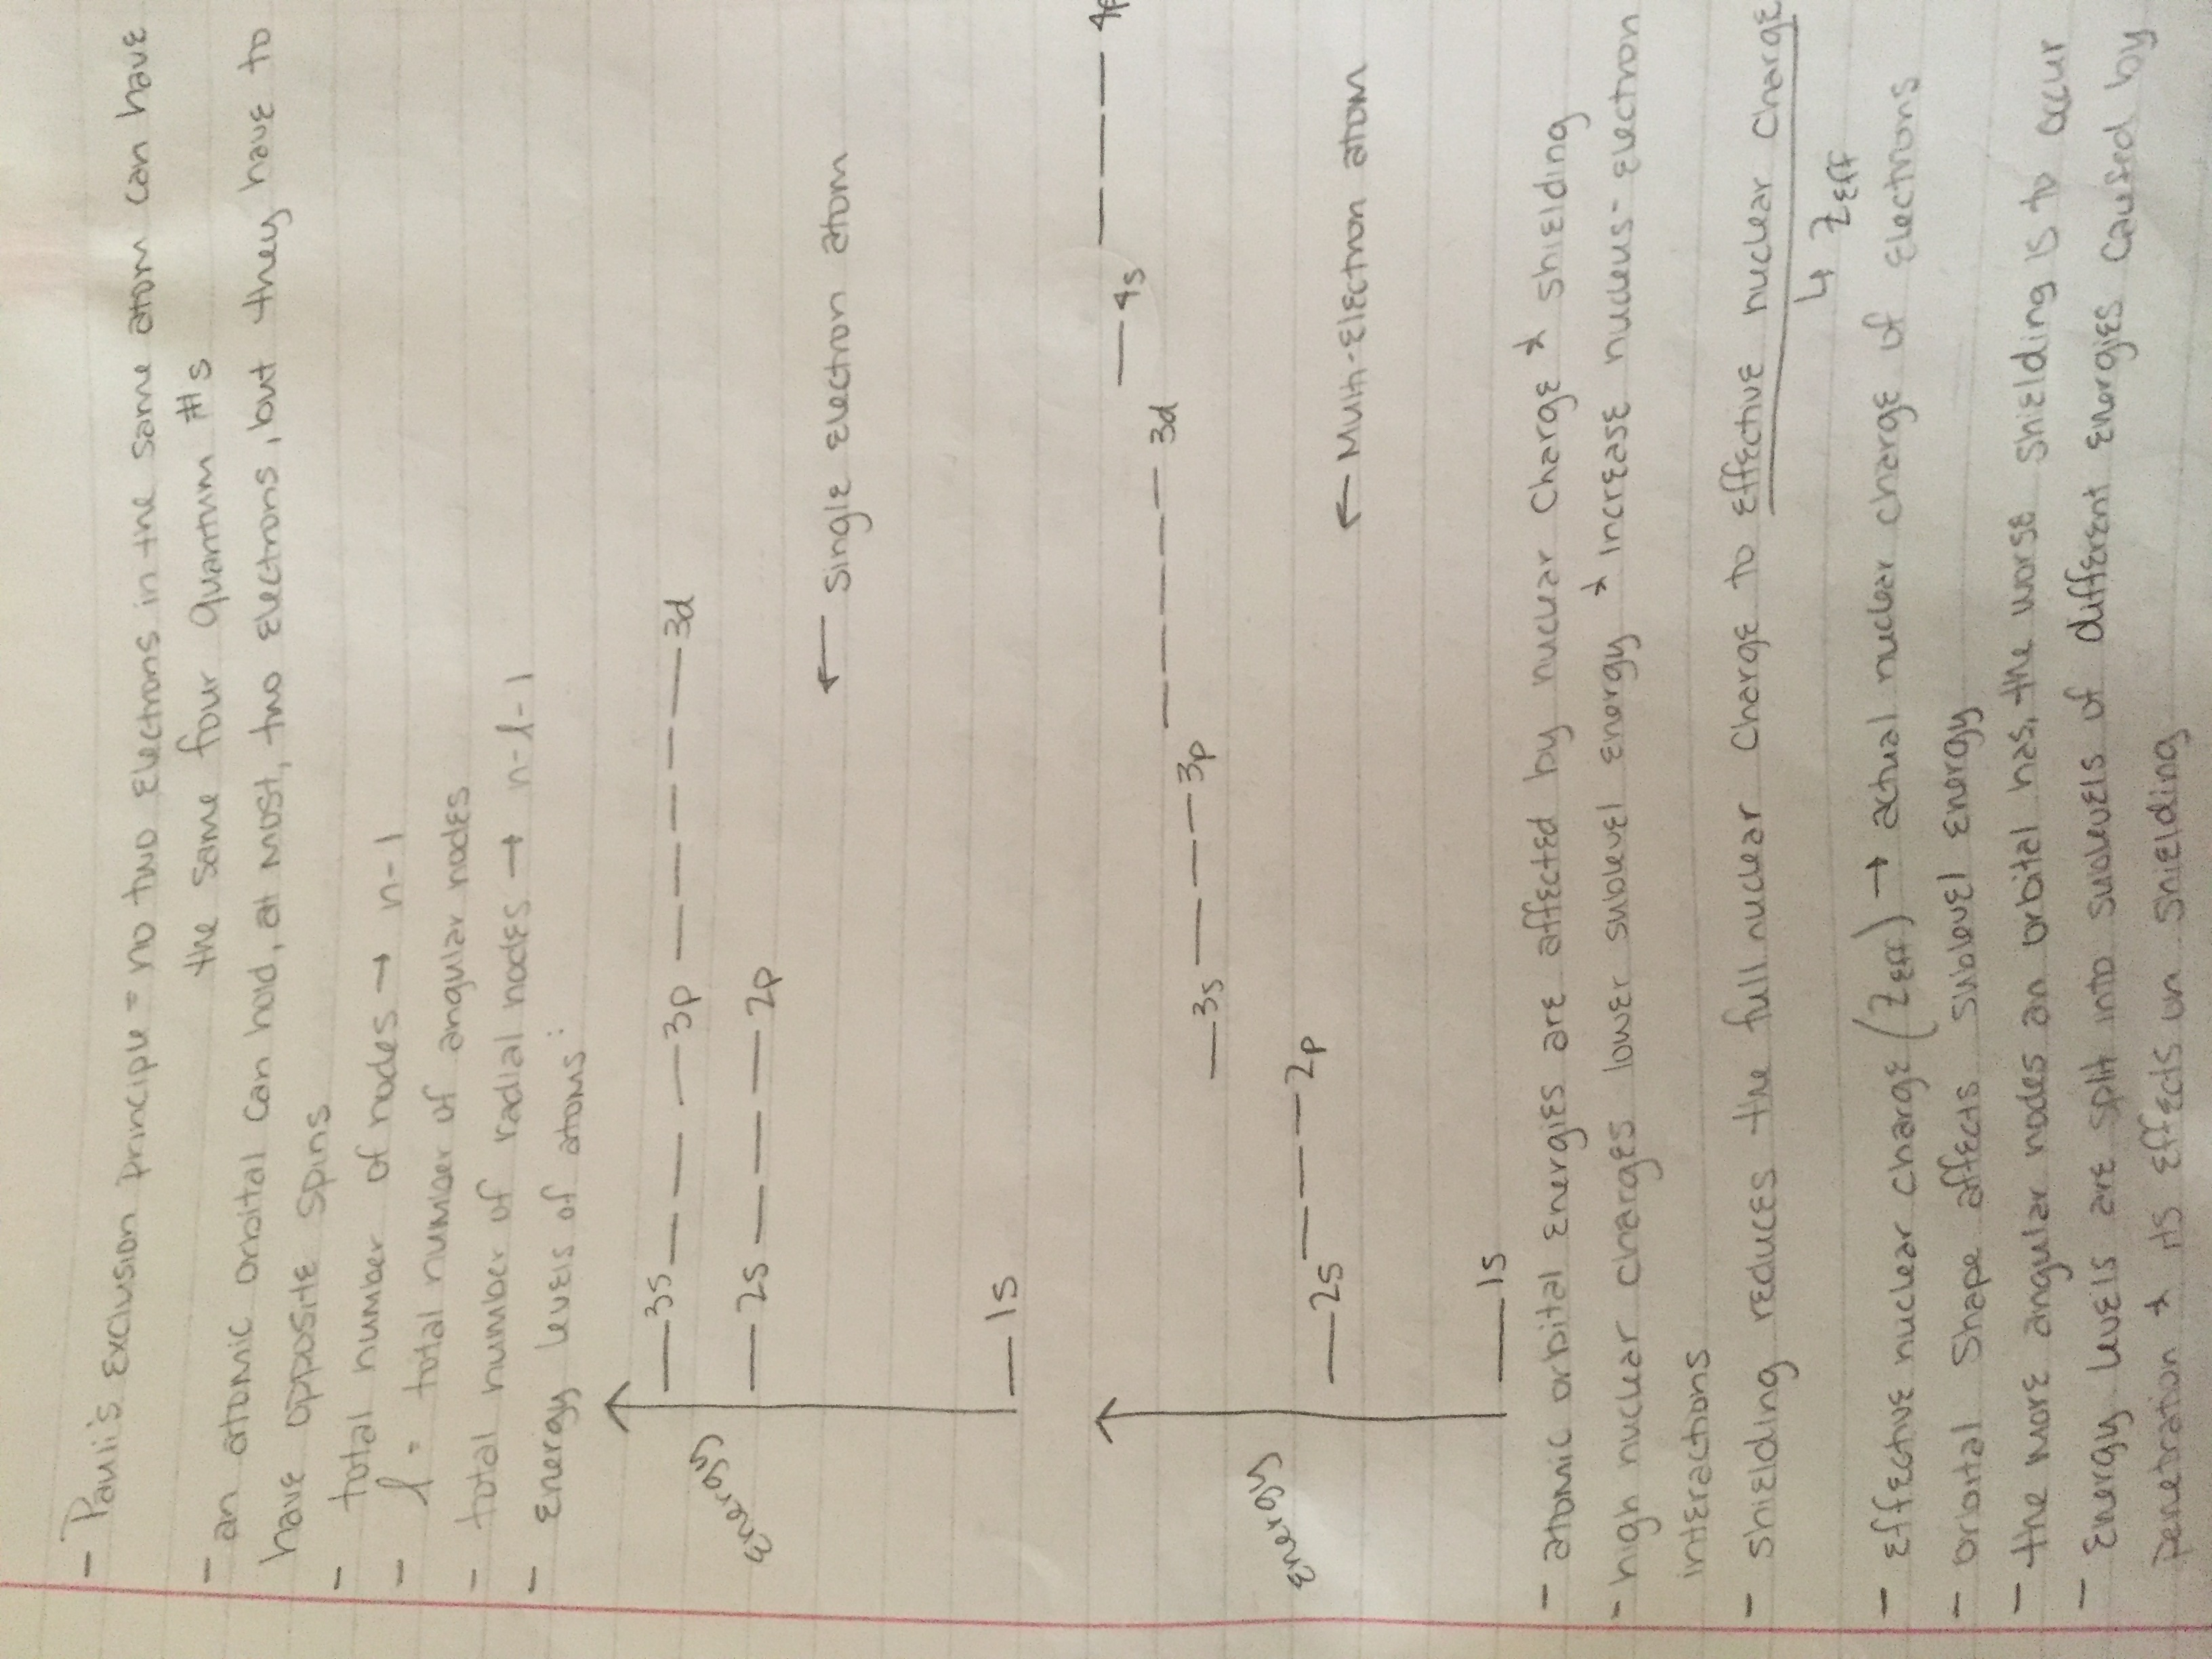 - Pauli's exclusion principle = no two electrons in the same atom can have
the same four quantum #s
- an atomic orbital can hold, at most, two electrons, but they have to
have opposite spins
- total number of nodes → n-1
- l = total number of angular nodes
- total number of radial nodes → n-l-1
- energy levels of atoms:
3s 3p 3d
2s 2p
energy
← single electron atom
1s
4s 4p
3d
3s 3p
energy
2s 2p
← Multi-electron atom
1s
- atomic orbital energies are affected by nuclear charge & shielding
- high nuclear charges lower sublevel energy & increase nucleus-electron
interactions
- shielding reduces the full nuclear charge to effective nuclear charge
↳ Zeff
- effective nuclear charge (Zeff) → actual nuclear charge of electrons
- orbital shape affects sublevel energy
- the more angular nodes an orbital has, the worse shielding is to occur
- energy levels are split into sublevels of different energies caused by
penetration & its effects on shielding